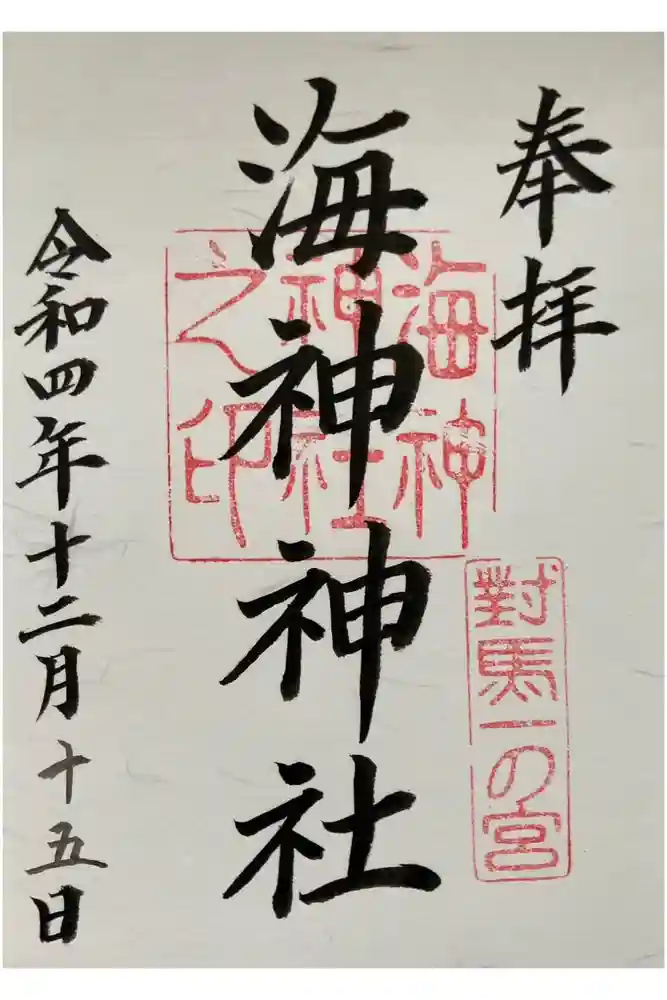 奉拝
對馬一の宮
海神神社
海神
神社
之印
令和四年十二月十五日